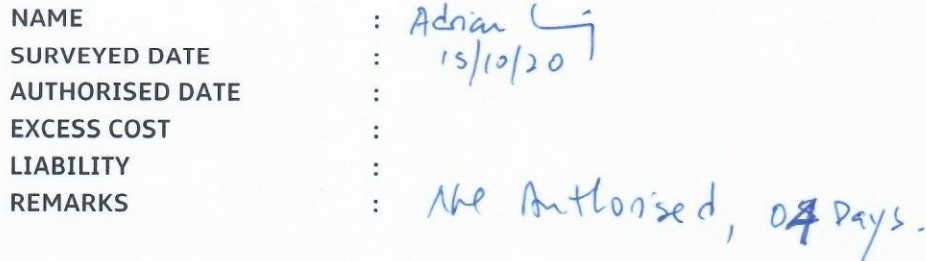 NAME : Adrian
SURVEYED DATE : 15/10/20
AUTHORISED DATE :
EXCESS COST :
LIABILITY :
REMARKS : Authorised, 04 Days.